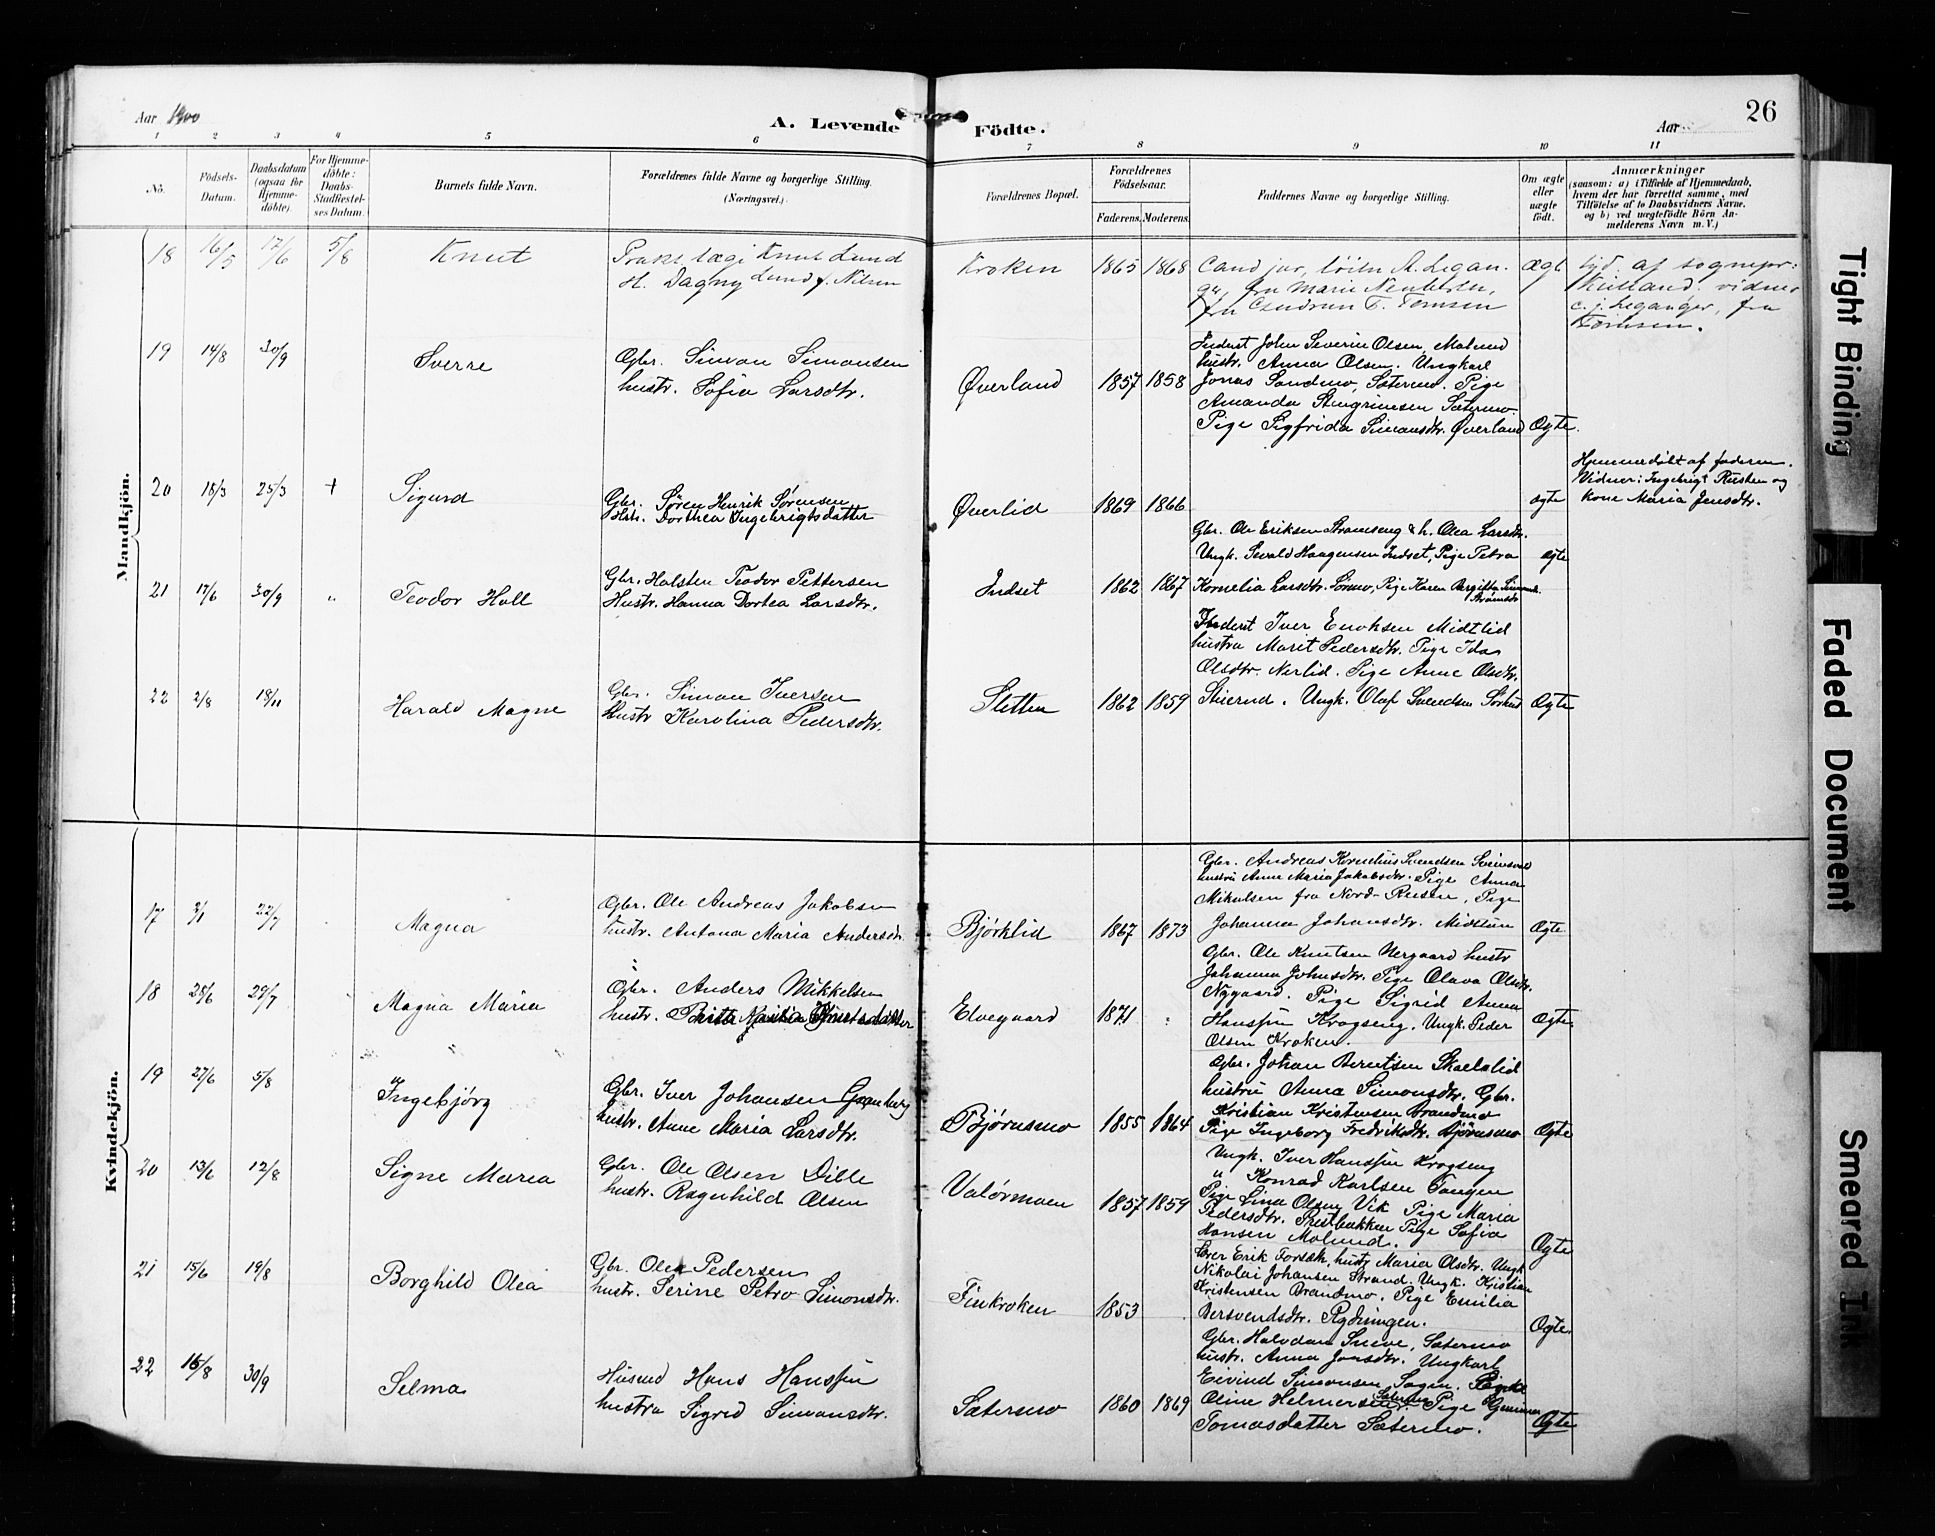 Aar 1900
A. Levende Födte.
Aar
26
1 2 3 4 5 6 7 8 9 10 11
No.
Födsels-
Datum.
Daabsdatum
(ogsaa for
Hjemme-
döbte).
For Hjemme-
döbte:
Daabs-
Stadfæstel-
ses Datum.
Barnets fulde Navn.
Forældrenes fulde Navne og borgerlige Stilling.
(Næringsvei.)
Forældrenes Bopæl.
Forældrenes
Födselsaar.
Faderens. Moderens.
Faddernes Navne og borgerlige Stilling.
Om ægte
eller
uægte
födt.
Anmærkninger
(saasom: a) i Tilfælde af Hjemmedaab,
hvem der har forrettet samme, med
Tilföielse af to Daabsvidners Navne,
og b) ved uægtefödte Börn An-
melderens Navn m. V.)
Mandkjön.
18 16/5 17/6 5/8 Knut
Prakt. læge Knut Lund
H. Dagny Lund f. Nilsen
Kroken 1865 1868
Cand jur,
fru Marie
Ægt
19 14/8 30/9 Sverre
Gbr. Simon Simonsen
hustr. Sofia Larsdtr.
Øverland 1857 1858
Inderst John Severin Olsen, Molund
hustr. Anna Olsen. Ungkarl
Jonas Sandmo, Sætermo. Pige
Amanda Stengrimsen Sætermo.
Pige Sigfrida Simonsdtr. Øverland
Ægte.
20 18/3 25/3 + Sigurd
Gbr. Søren Henrik Sørensen
Hstr. Dorthea Ingebrigtsdatter
Øverlid 1869 1866
Gbr. Ole Eriksen Strømseng & h. Olea Larsdtr.
Ungk. Sevald Haagensen Indset, Pige Petra
ægte
ægte
Hjemmedøbt af faderen.
Vidner: Ingebrigt Rusten og
kone Maria Jensdtr.
21 17/6 30/9 " Teodor Holl
Gbr. Halsten Teodor Pettersen
Hustr. Hanna Dortea Larsdtr.
Indset 1862 1867
Kornelia Larsdtr. Sørmo, Pige Karen Bergitte
22 2/8 18/11 Harald Magne
Gbr. Simon Iversen
Hustr Karolina Pedersdtr.
Sletten 1862 1859
Inderst Iver Enoksen Midtlid
hustru Marit Pedersdtr. Pige Ida
Olsdtr. Nerlid. Pige Anne Olsdtr.
Ungk. Olaf Svendsen
Ægte
Kvindekjön.
17 2/1 22/7 Magna
Gbr. Ole Andreas Jakobsen
hustr. Antona Maria Andersdtr.
Bjørklid 1867 1873
Gbr. Andreas Kornelius Svendsen
hustru Anne Maria Jakobsdtr. Pige Anna
Mikalsen fra Nord-Reisen, Pige
Johanna Johansdtr. Midtun
Ægte
18 25/6 29/7 Magna Maria
Gbr. Anders Mikkelsen
hustr.
Elvegaard 1871
Gbr. Ole Knutsen Nergaard hustr
Johanna Johnsdtr. Pige Olava Olsdtr.
Nygaard. Pige Sigrid Anna
Hanssen Krogseng. Ungk. Peder
Olsen Kroken.
Ægte.
19 27/6 5/8 Ingebjörg
Gbr. Iver Johansen Granberg
hustr. Anne Maria Larsdtr.
Bjørnsmo 1855 1864
Gbr. Johan Berntsen Skoelvlid
hustru Anna Simonsdtr. Gbr.
Kristian Kristensen Brandmo
Pige Ingeborg Fredriksdtr. Bjørnsmo
Ægte
20 13/6 12/8 Signe Maria
Gbr. Ole Olsen Dille
hustr. Ragnhild Olsen
Valörmoen 1857 1859
Ungk. Iver Hanssen Krogseng
" Konrad Karlsen Tangen
Pige Lina Olsen Vik Pige Maria
Pedersdtr. Prestbakken Pige Sofia
Hansen Molund.
Ægte
21 15/6 19/8 Borghild Olea
Gbr. Ole Pedersen
hustr. Serine Petra Simonsdtr.
Finkroken 1853
Erik Forsæth hustr Maria Olsdtr. Ungk
Nikolai Johansen Strand. Ungk. Kristian
Kristensen Brandmo. Pige Emilia
Bersvendsdtr. Rydningen.
Ægte
22 16/8 30/9 Selma
Husmd Hans Hanssen
hustru Sigrid Simonsdtr.
Sætermo 1860 1869
Gbr. Halvdan Sneve, Sætermo
hustr. Anna Jonsdtr. Ungkarl
Eivind Simonsen Sagen. Pige
Oline Helmersen Sætermo Pige
Tomasdatter Sætermo.
Ægte
Tight Binding
Faded Document
Smeared Ink